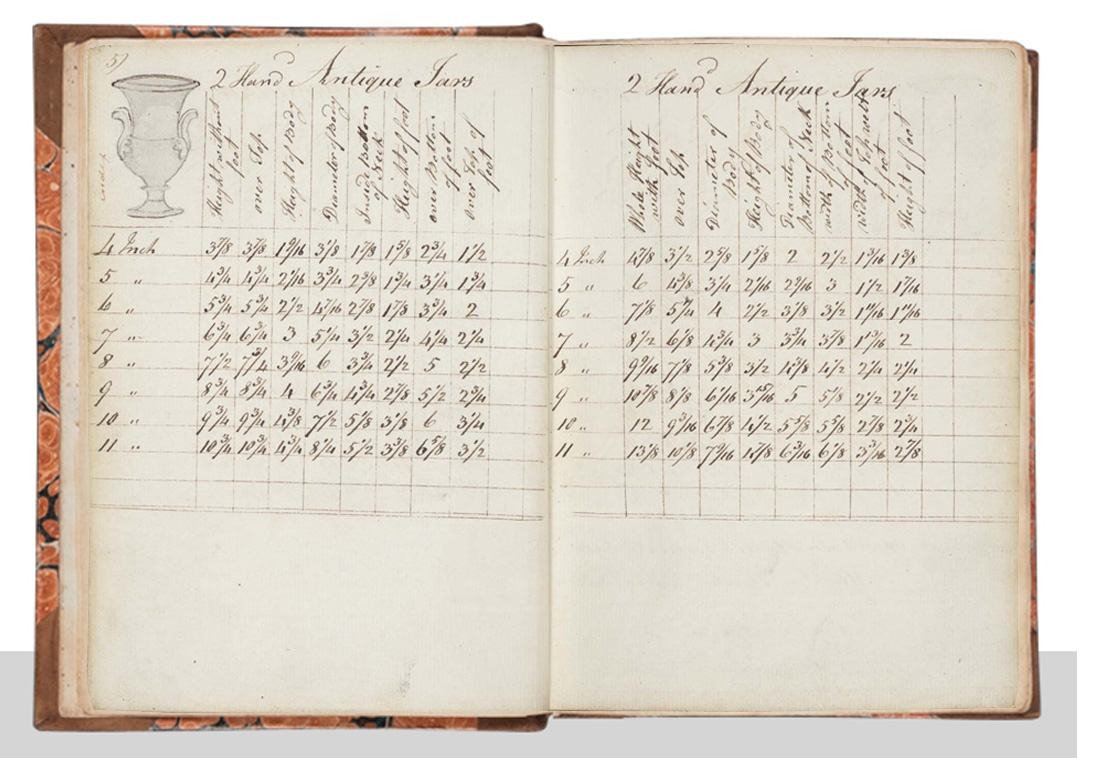 5
2 Hand Antique Jars
Height without foot
over Top
Height of Body
Diameter of Body
Inside Bottom of Neck
Height of foot
over Bottom of foot
over Top of foot
4 Inch 3 7/8 3 7/8 1 9/16 3 1/8 1 7/8 1 5/8 2 3/4 1 1/2
5 " 4 3/4 4 3/4 2 1/16 3 3/4 2 3/8 1 3/4 3 1/4 1 3/4
6 " 5 3/4 5 3/4 2 1/2 4 7/16 2 7/8 1 7/8 3 3/4 2
7 " 6 3/4 6 3/4 3 5 1/4 3 1/2 2 1/4 4 1/4 2 1/4
8 " 7 1/2 7 3/4 3 9/16 6 3 3/4 2 1/2 5 2 1/2
9 " 8 3/4 8 3/4 4 6 3/4 4 3/4 2 7/8 5 1/2 2 3/4
10 " 9 3/4 9 3/4 4 3/8 7 1/2 5 1/8 3 1/8 6 3 1/4
11 " 10 3/4 10 3/4 4 3/4 8 1/4 5 1/2 3 3/8 6 5/8 3 1/2
2 Hand Antique Jars
Whole Height with foot
over Top
Diameter of Body
Height of Body
Diameter of Bottom of Neck
width of Bottom of foot
width of of foot
Height of foot
4 Inch 4 7/8 3 1/2 2 5/8 1 5/8 2 2 1/2 1 3/16 1 3/8
5 " 6 4 5/8 3 1/4 2 1/16 2 9/16 3 1 1/2 1 7/16
6 " 7 1/8 4 2 1/2 3 1/8 3 1/2 1 11/16
7 " 8 1/2 6 1/8 4 3/4 3 3 3/4 3 7/8 1 13/16 2
8 " 9 9/16 7 1/8 5 3/8 3 1/2 4 3/8 4 1/2 2 1/4 2 1/4
9 " 10 7/8 8 1/8 6 1/16 3 15/16 5 5 1/8 2 1/2 2 1/2
10 " 12 9 3/16 6 7/8 4 1/2 5 5/8 5 5/8 2 7/8 2 3/4
11 " 13 1/8 10 1/8 7 9/16 4 7/8 6 3/16 6 1/8 3 3/16 2 7/8